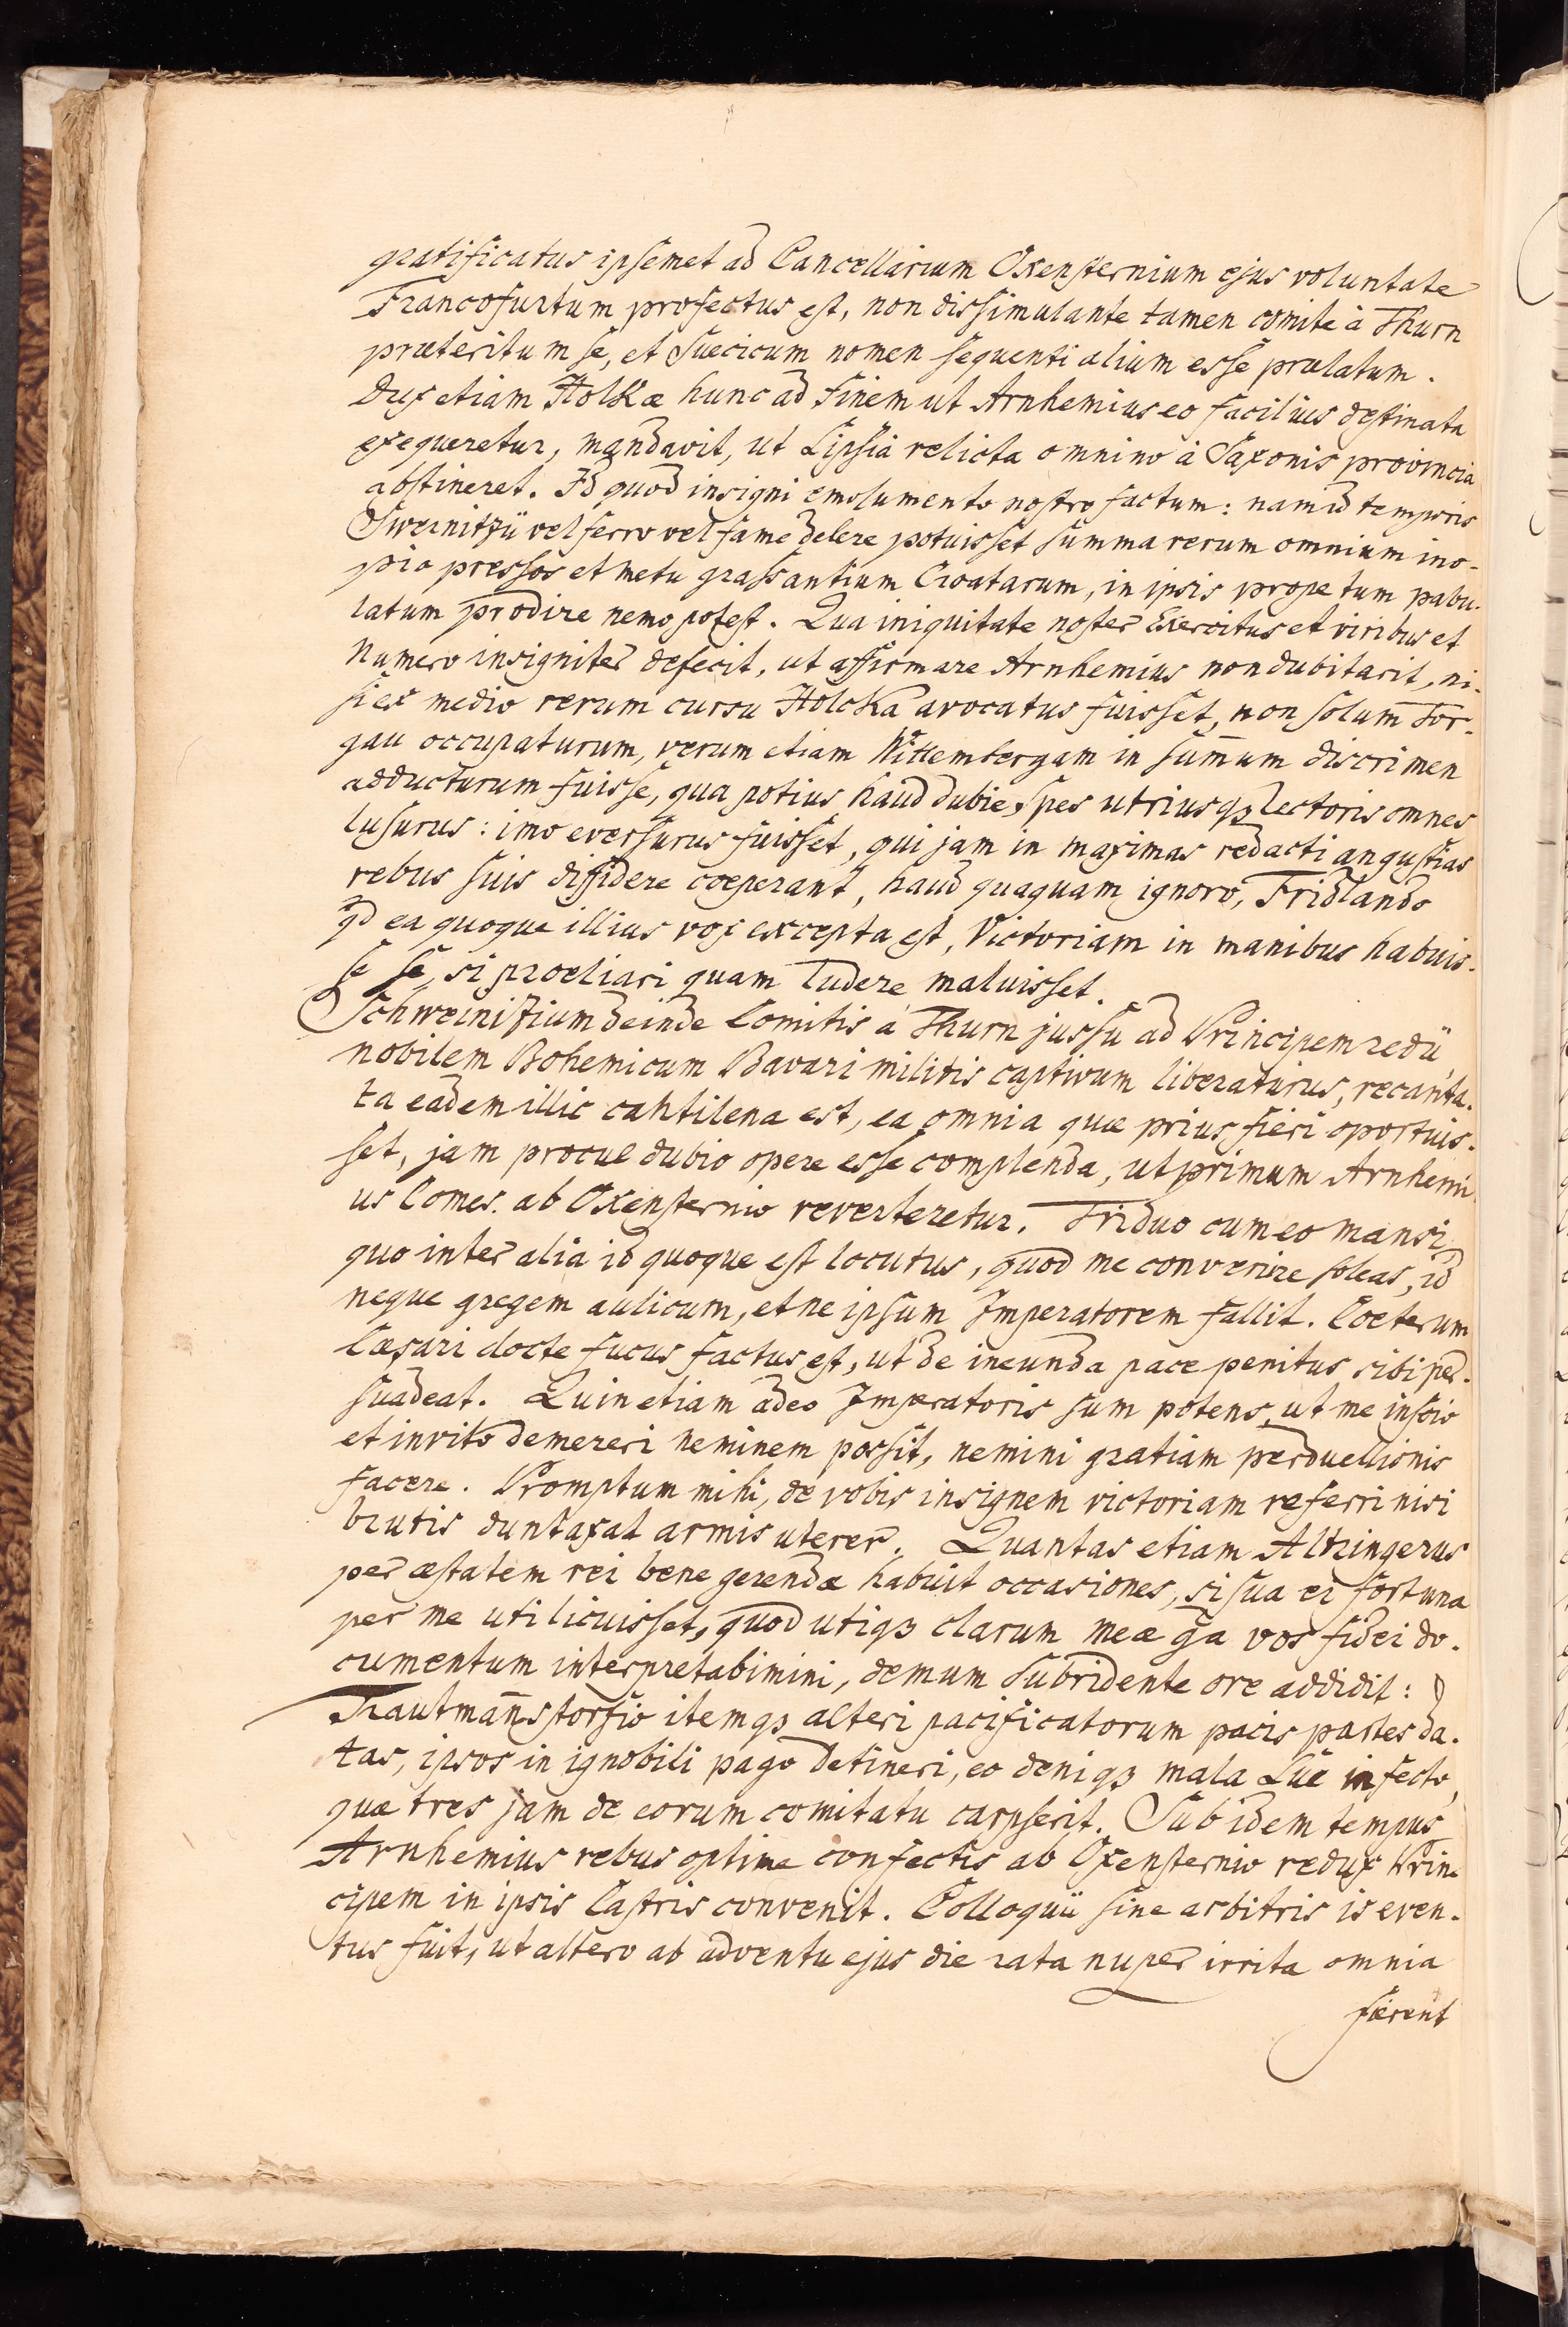 gratificatus ipsemet ad Cancellarium Oxensternium ejus voluntate
Francofurtum profectus est, non dissimulante tamen comite à Thurn
præteritum se, et Suecicum nomen sequenti alium esse prælatum.
Dux etiam Holkæ hunc ad finem ut Arnhemius eo facilius destinata
exequeretur, mandavit, ut Lipsiâ relicta omnino à Saxonis provincia
abstineret. Id quod insigni emolumento nostro factum: nam id temporis
Sweinitzii vel ferro vel fame delere potuisset summa rerum omnium ino-
pia pressos et metu grassantium Croatarum, in ipsis prope tum pabu-
latum prodire nemo potest. Qua iniquitate noster Exercitus et viribus et
numero insigniter defecit, ut affirmare Arnhemius non dubitarit, ni-
si ex medio rerum cursu Holcka avocatus fuisset, non solum Tor-
gau occupaturum, verum etiam Wittembergam in sum̄um discrimen
adducturum fuisse, qua potius haud dubie spes utriusqꝫ lectoris omnes
lusurus: imo eversurus fuisset, qui jam in maximas redacti angustias
rebus suis diffidere coeperant, haud quaquam ignoro, Fridlando
qd ea quoque illius vox excepta est, Victoriam in manibus habuis-
se se, si proeliari quam ludere maluisset.
Schweinizium deinde Comitis á Thurn jussu ad Principem redii
nobilem Bohemicum Bavari militis captivum liberaturus, recanta-
ta eadem illic cantilena est, ea omnia quæ prius fieri oportuis-
set, jam procul dubio opere esse complenda, ut primum Arnhemi-
us Comes. ab Oxensternio reverteretur. Triduo cum eo mansi,
quo inter alia id quoque est locutus, quod me convenire soleas, id
neque gregem aulicum, et ne ipsum Imperatorem fallit. Coeterum
Cæsari docte fucus factus est, ut de ineunda pace penitus sibi per-
suadeat. Quin etiam adeo Imperatoris sum potens, ut me inscio
et invito demereri neminem possit, nemini gratiam perduellionis
facere. Promptum mihi, de vobis insignem victoriam referri nisi
brutis duntaxat armis uterer. Quantas etiam Altringerus
per æstatem rei bene gerendæ habuit occasiones, si sua ei fortuna
per me uti licuisset, quod utiqꝫ clarum meæ ḡa vos fidei do-
cumentum interpretabimini, demum subridente ore addidit:
Trautman̄storfio itemqꝫ alteri pacificatorum pacis partes da-
tas, ipsos in ignobili pago detineri, eo deniqꝫ mala Lue infecto,
quæ tres jam de eorum comitatu carpserit. Sub idem tempus
Arnhemius rebus optime confectis ab Oxensternio redux Prin-
cipem in ipsis Castris convenit. Colloquii sine arbitris is even-
tus fuit, ut altero ab adventu ejus die rata nuper irrita omnia
fierent